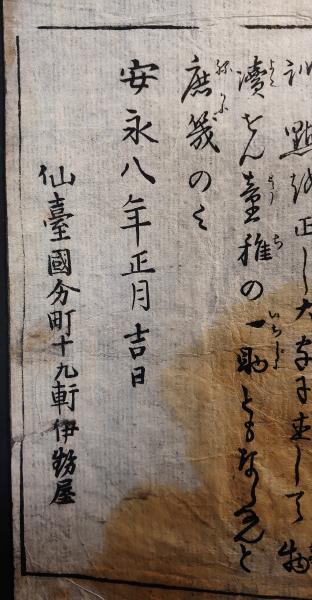 訓點を正し大字に書して
瀆せん童稚の一助ともならんと
庶幾のミ
安永八年正月吉日
仙臺國分町十九軒伊勢屋